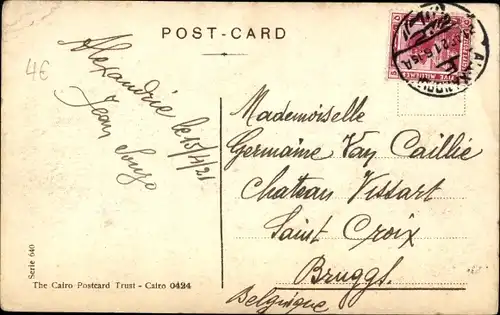 POST-CARD
4€
Alexandrie le 15/4/21
Jean
Mademoiselle
Germaine Van Caillie
Chateau Vissart
Saint Croix
Bruggs.
Belgique
FIVE MILLIEMES
Serie 640
The Cairo Postcard Trust - Cairo 0424